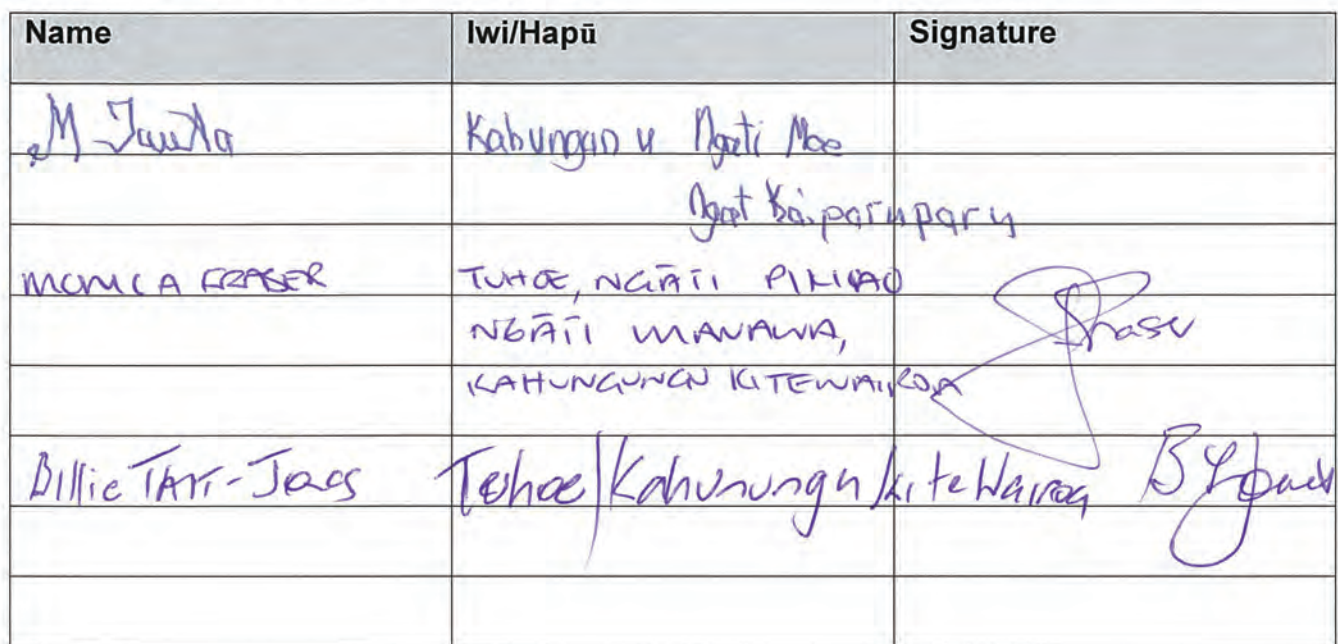 Name Iwi/Hapū Signature
M Kabungan u Ngati Moe
Ngat Kaiparuparu
MONICA FRASER TUHOE, NGĀTI PIKIAO
NGĀTI MANAWA,
KAHUNGUNGU KITEWAIROA
Billie Tehoe/Kahunungu/kiteWairoa